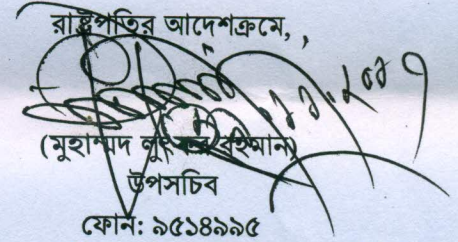 রাষ্ট্রপতির আদেশক্রমে,
(মুহাম্মদ রহমান)
উপসচিব
ফোন: ৯৫১৪৯৯৫